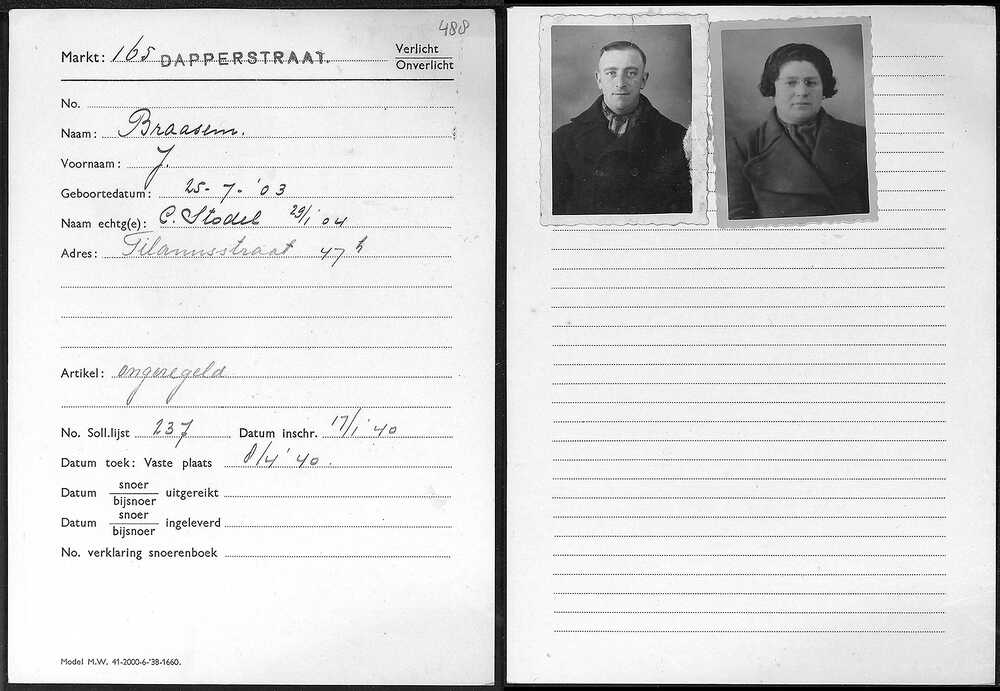 488
Markt: 165 DAPPERSTRAAT. Verlicht
Onverlicht
No.
Naam: Braasem.
Voornaam: J.
Geboortedatum: 25-7-'03
Naam echtg(e): C. Stodel 29/1 04
Adres: Tilanusstraat 47 h
Artikel: ongeregeld
No. Soll.lijst 237 Datum inschr. 17/1 '40
Datum toek: Vaste plaats 8/4 '40.
Datum snoer
bijsnoer uitgereikt
Datum snoer
bijsnoer ingeleverd
No. verklaring snoerenboek
Model M.W. 41-2000-6-'38-1660.